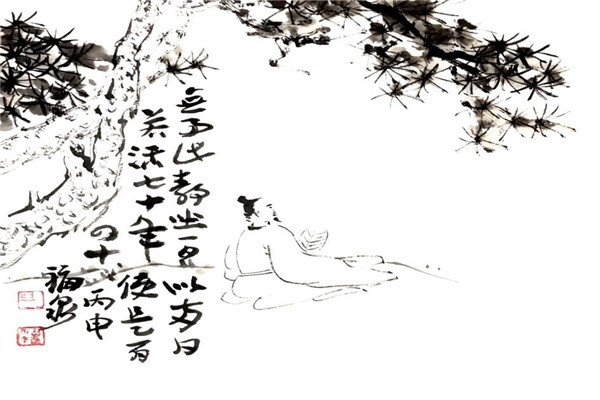 無事此静坐一日似兩日
若活七十年便是百
四十 丙申
福泉